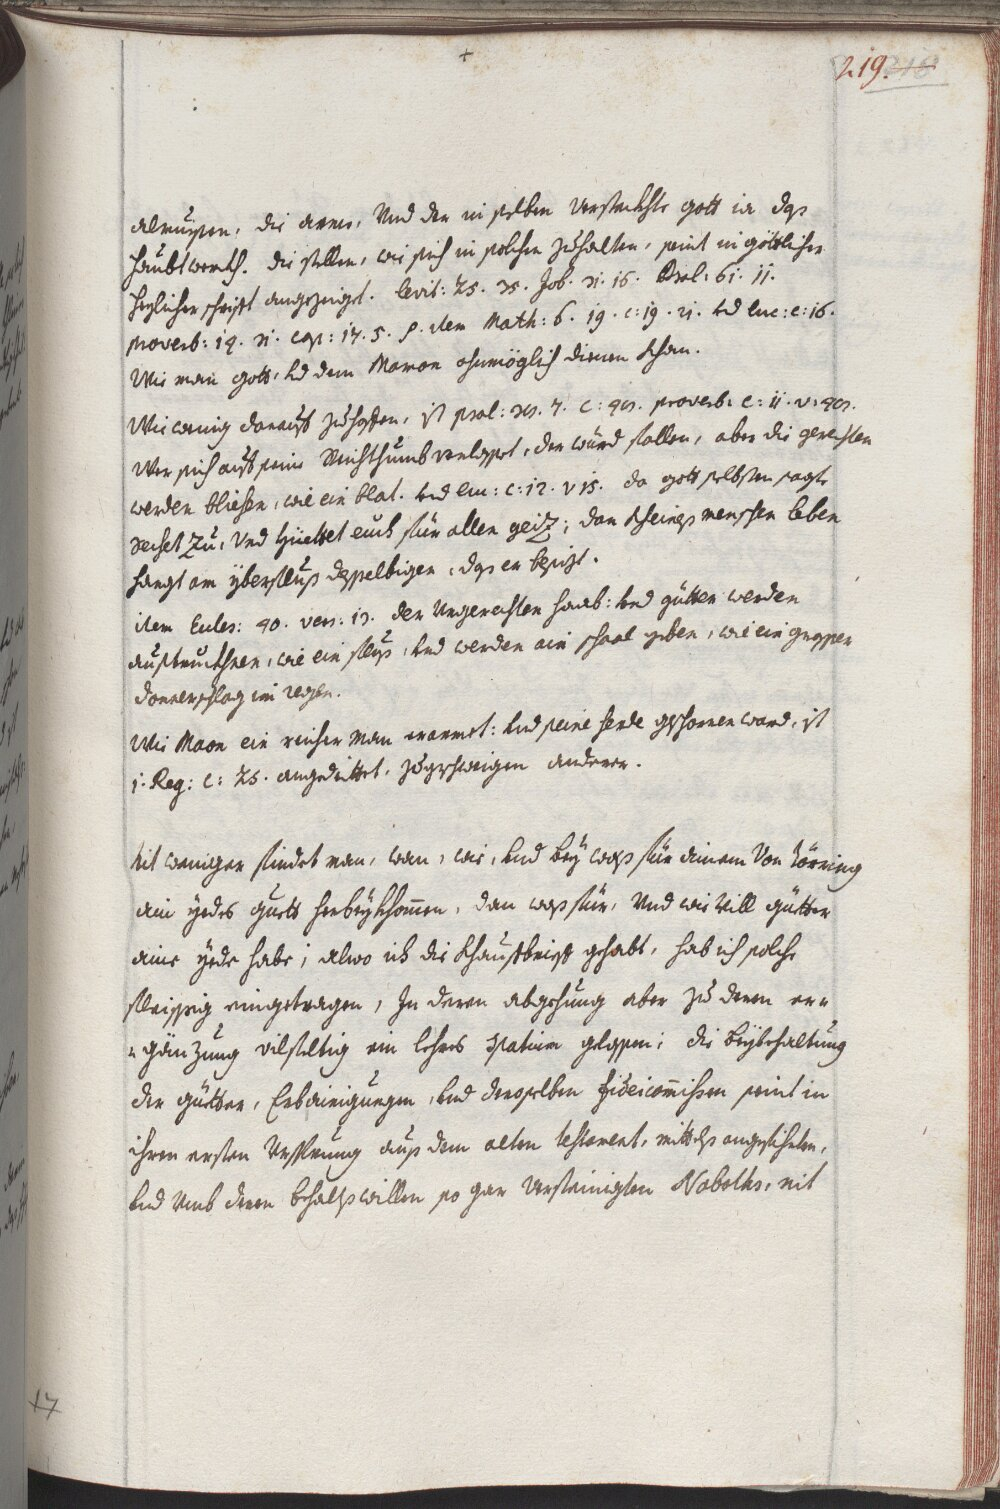 +
219. 218
almussen, die arme, Und der in selben Versteckhte gott ia dss
haubtwerch. die stellen, wie sich in solchen zuhalten, seint in göttlicher
heylicher schrifft angezeiget. levit: 25. 35. Job. 31. 16. Psal: 61. 11.
proverb: 19. 21. cap: 17. 5. item Math: 6. 19. c: 19. 21. Und luc: c: 16.
Wie man gott, Und dem Mamon ohnmöglich dienen khan.
Wie wenig darauf zuhoffen, ist psal: 7. c: proverb: c: 11. v: 28.
Wer sich auf seine Reichthumb verlasset, der würd fallen, aber die gerechten
werden bliehen, wie ein blat. Und luc: c: 12. v 15. da gott selbsten sagt
sechet Zu, Und Hüettet euch für allen geiz; dan kheines menschen leben
hangt am yberfluß desselbigen, dss er besizt.
item Eccles: 40. vers: 13. der Ungerechten haab: Und gütter werden
außtruckhnen, wie ein fluß, Und werden ain schaal geben, wie ein grosser
donnerschlag im regen.
Wie Maon ein reicher Man ermant: Und seine herde geschorren ward, ist
1. Reg: c: 25. angedeittet, zugeschweigen anderer.
Nit weniger findet man, wan, wie, Und bey wass für ainem Von Törring
ain yedes guett herbeykhommen, dan wass für, Und wie Vill güetter
aine yede habe; alwo ich die khaufbrieff gehabt, hab ich solche
fleissig eingetragen, In deren abgehung aber zu deren er=
=gänzung vilfeltig ein lehres spatium gelassen; die beybehaltung
der güetter, Erbainigungen, Und deroselben fideicommissen seint in
ihren ersten Ursprung auß dem alten testament, mittelss angefihrten,
Und Umb deren behalts willen so gar Versteinigten Naboths, nit
17